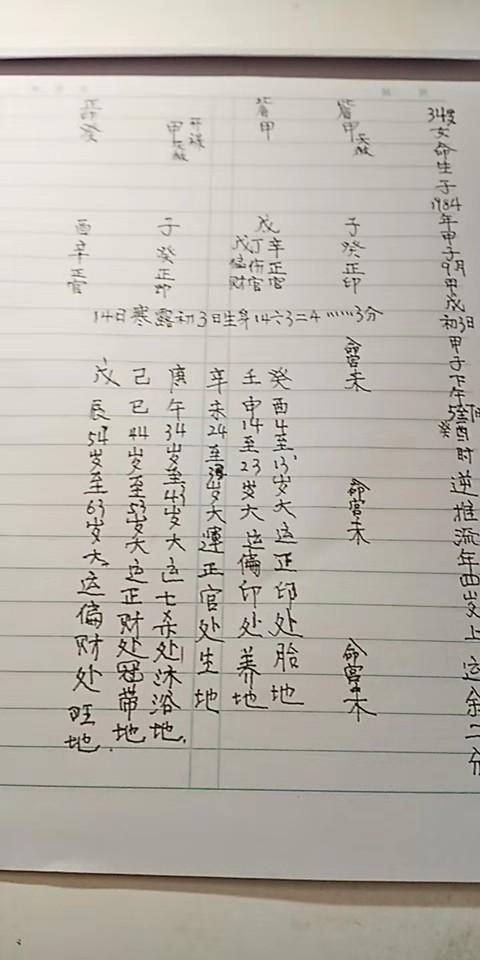 34岁女命生于1984年甲子9月甲戌初3日甲子下午5至7酉时逆推流年四岁上运余二分
甲天赦 子癸正印 命宫未 命宫未 命宫未
甲 戌辛正官丁伤官戊偏财
甲天赦 子癸正印
正印癸 酉辛正官
14日寒露初3日生身14÷3=4……3分
癸酉4至13岁大运正印处胎地
壬申14至23岁大运偏印处养地
辛未24至33岁大運正官处生地
庚午34岁至43岁大运七杀处沐浴地.
己巳44岁至53岁大运正财处冠带地
戊辰54岁至63岁大运偏财处旺地.